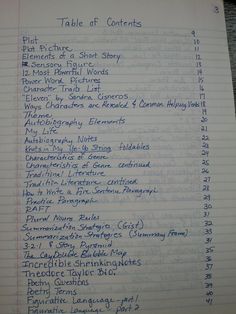 3
Table of Contents
Plot 9
Plot Picture 10
Elements of a Short Story 11
Sensory Figure 12
12 Most Powerful Words 13
Power Word Pictures 14
Character Traits List 15
"Eleven" by Sandra Cisneros 16
Ways Characters are Revealed & Common Helping Verbs 17
Theme 18
Autobiography Elements 19
My Life 20
Autobiography Notes 21
Knots in My Yo-Yo String foldables 22
Characteristics of Genre
Characteristics of Genre continued
Traditional Literature
Traditional Literature continued
How to Write a Five Sentence Paragraph
Practice Paragraph
RAFT
Plural Nouns Rules
Summarization Strategies (Gist)
Summarization Strategies (Summary Frame)
3-2-1 & Story Pyramid
The Cay Double Bubble Map
Incredible Shrinking Notes
Theodore Taylor Bio.
Poetry Questions
Poetry Terms 40
Figurative Language - part 1 41
Figurative Language - part 2